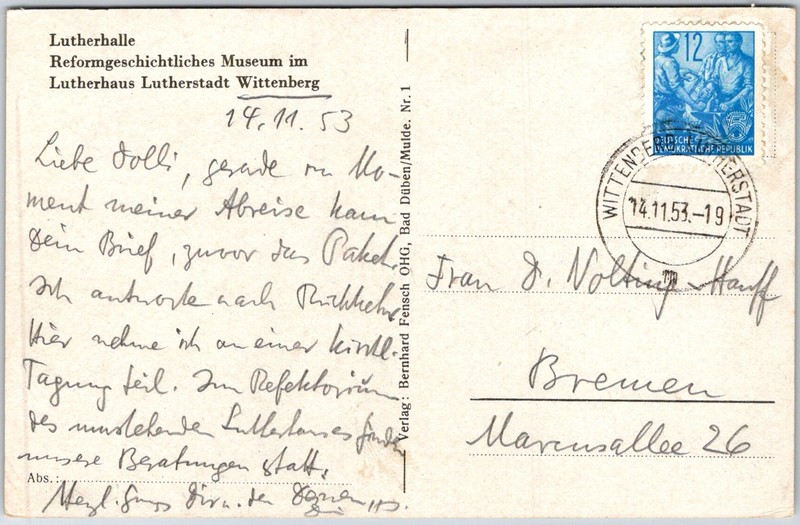 Lutherhalle
Reformgeschichtliches Museum im
Lutherhaus Lutherstadt Wittenberg
14.11.53
Liebe Dolli, gerade im Mo-
ment meiner Abreise kam
Dein Brief, zuvor das Paket.
Ich antworte nach Rückkehr.
Hier nehme ich an einer kirchl.
Tagung teil. Im Refektorium
des umstehenden Lutherhauses finden
unsere Beratungen statt.
Abs.:
Herzl. Gruss Dir u. den Deinen
Verlag: Bernhard Fensch OHG, Bad Düben/Mulde. Nr. 1
12
DEUTSCHE
DEMOKRATISCHE REPUBLIK
5
WITTENBERG LUTHERSTADT
14.11.53.-19
m
Frau D. Nolting-Hauff
Bremen
Marcusallee 26